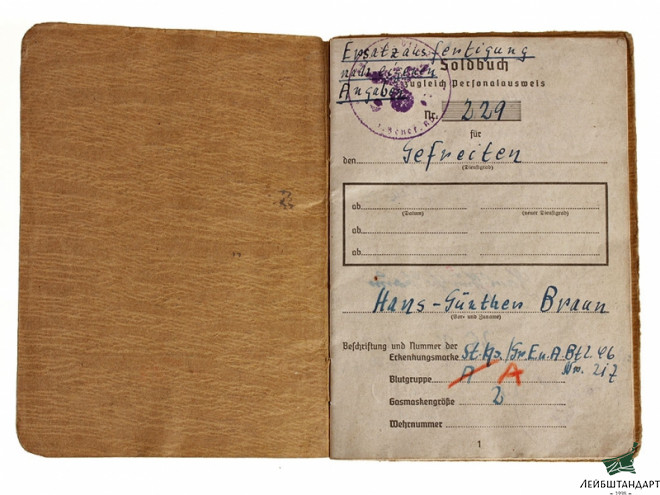 Ersatzausfertigung
nach eigenen
Angaben
Soldbuch
zugleich Personalausweis
Nr. 229
für
den Gefreiten
(Dienstgrad)
ab
(Datum) (neuer Dienstgrad)
ab
ab
Hans-Günther Braun
(Vor- und Zuname)
Beschriftung und Nummer der
Erkennungsmarke St.Kp./Gr.E.u.A.Btl. 46
Nr. 217
Blutgruppe A A
Gasmaskengröße 2
Wehrnummer
1
ЛЕЙБШТАНДАРТ
1998